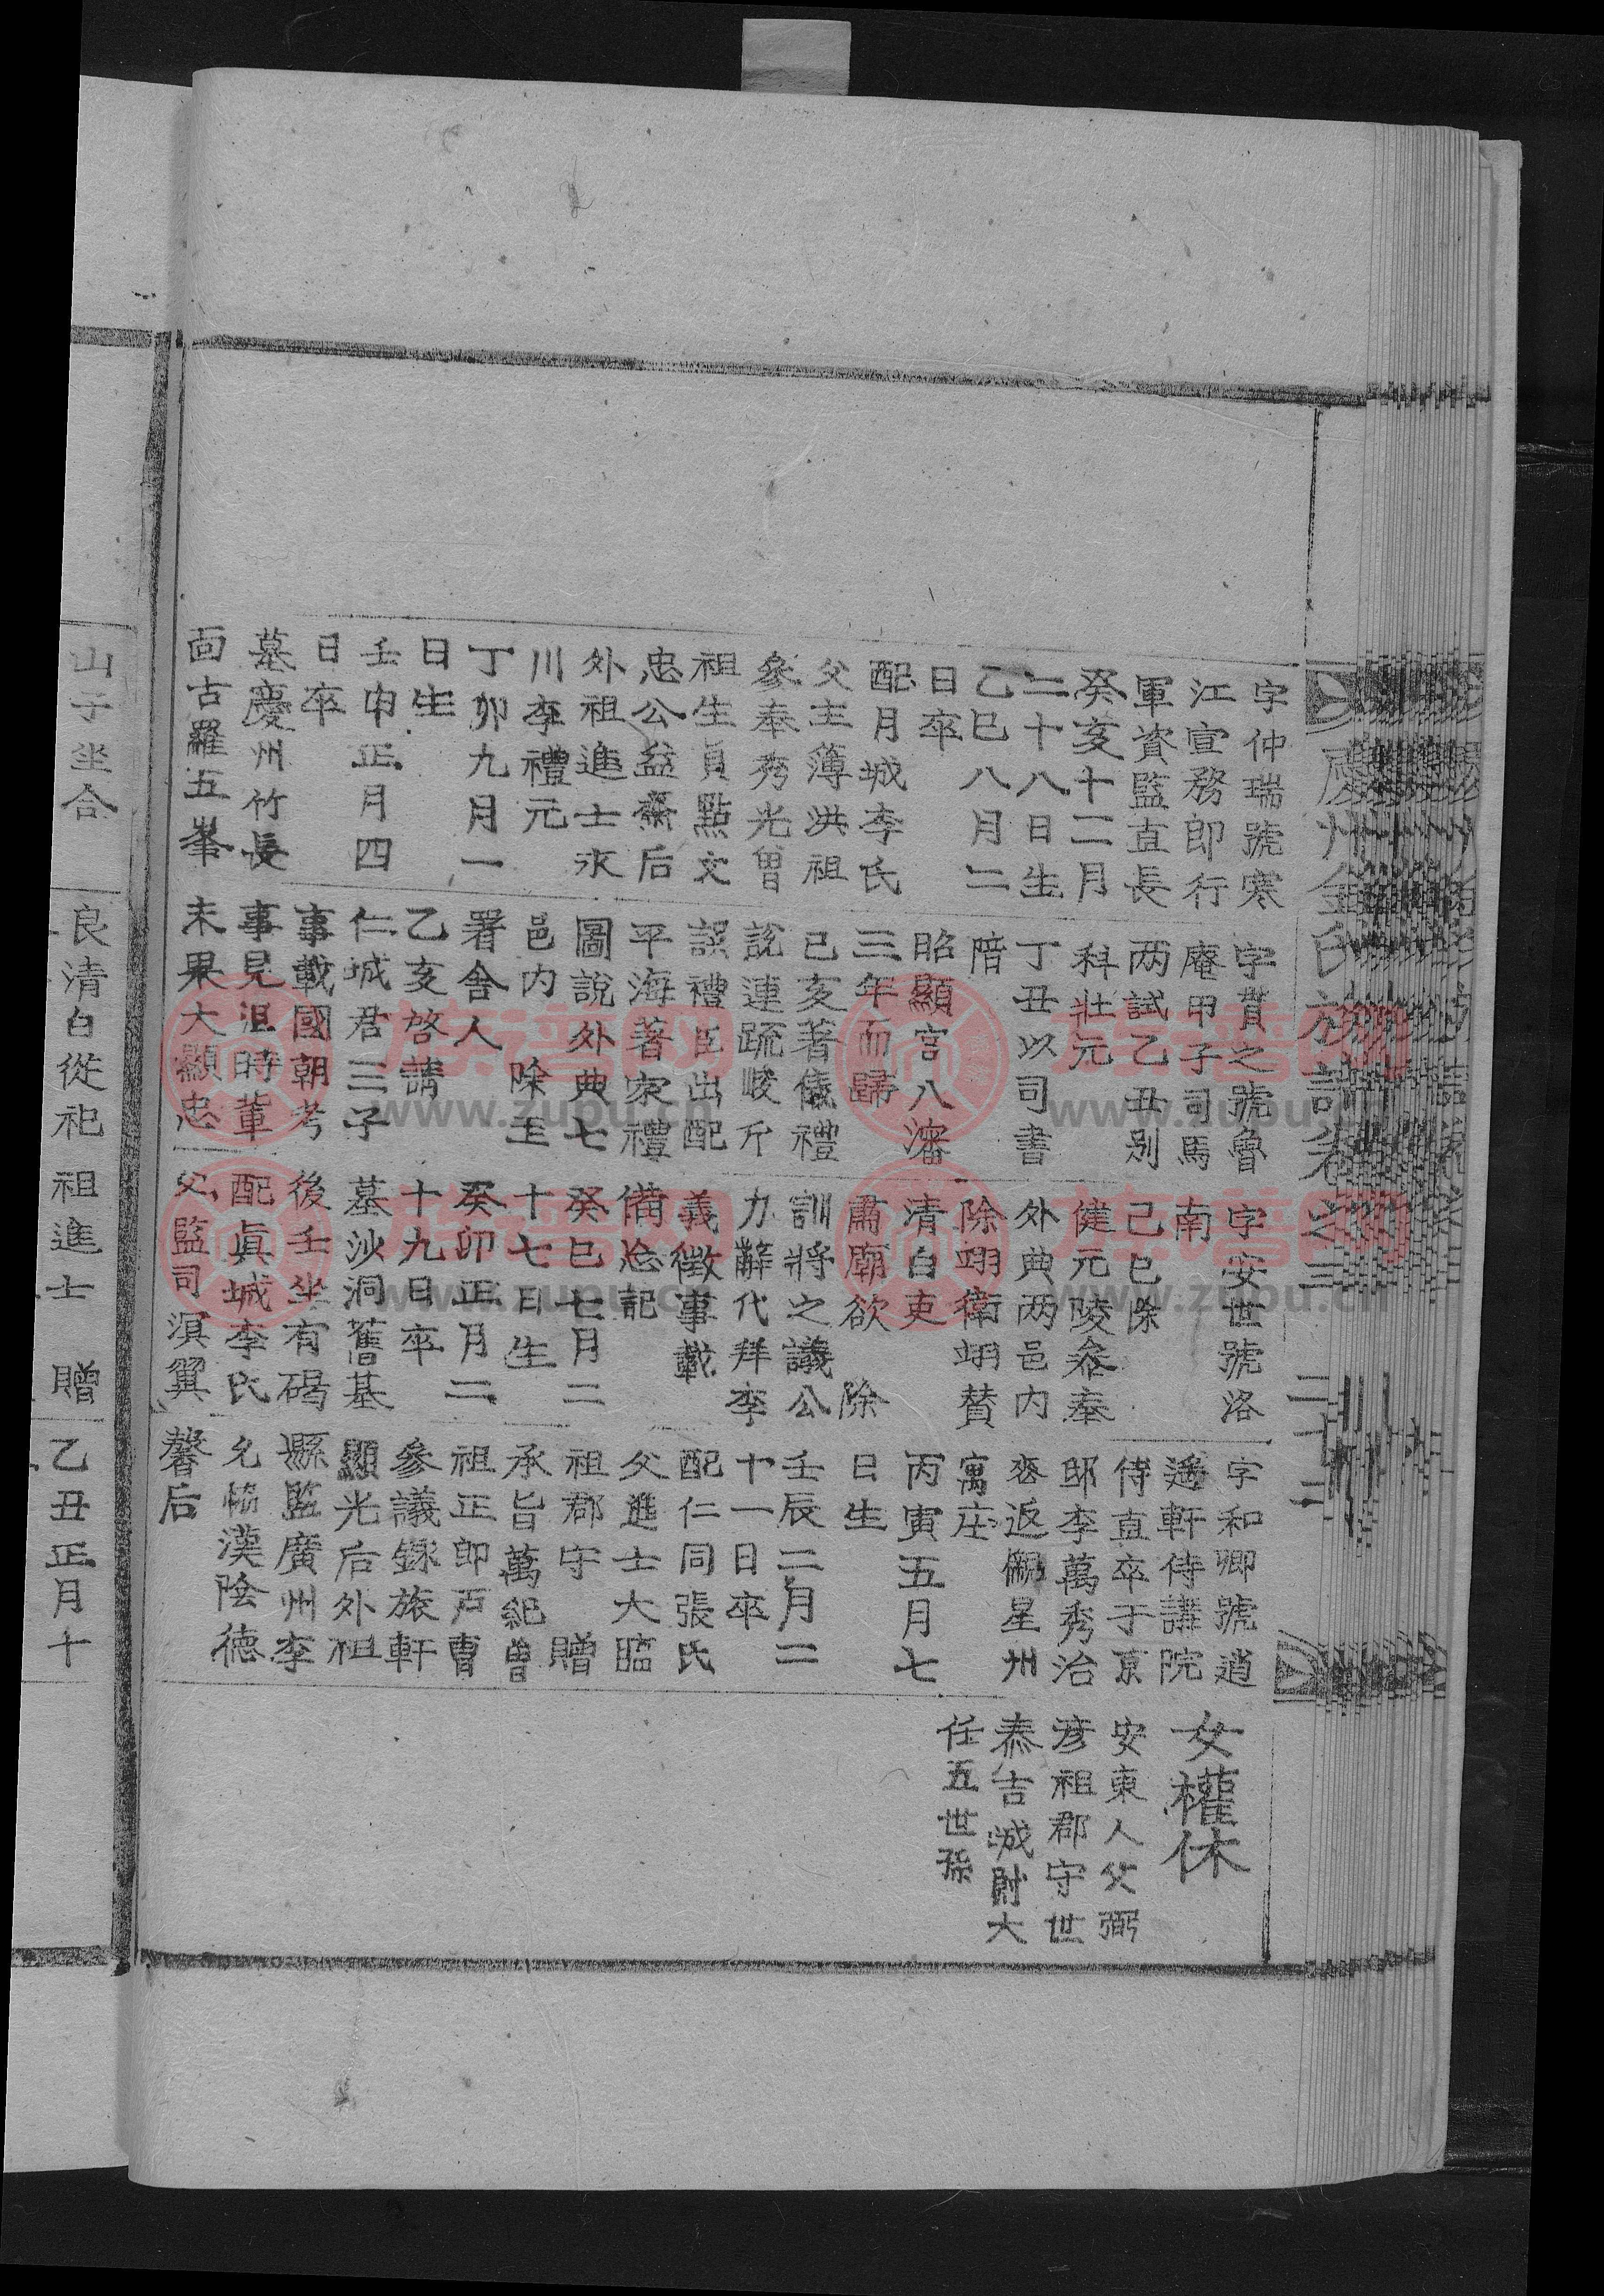 慶州金氏族譜卷之三
二十三
字仲瑞號寒
江宣務郎行
軍資監直長
癸亥十二月
二十八日生
乙巳八月二
日卒
配月城李氏
父主薄洪祖
參奉秀光曾
祖生員點文
忠公益齋后
外祖進士永
川李禮元
丁卯九月一
日生
壬申正月四
日卒
墓慶州竹長
面古羅五峯
字貫之號魯
庵甲子司馬
两試乙丑别
科壯元
丁丑以司書
陪
昭顯宮入瀋
三年而歸
己亥著儀禮
說連疏峻斥
誤禮臣出配
平海著家禮
圖說外典七
邑内除玉
署舍人
乙亥啓請
仁城君三子
事載國朝考
事見沮時輩
未果大顯忠
字安世號洛
南
己巳除
健元陵叅奉
外典两邑内
除翊衛翊賛
清白吏
肅廟欲除
訓將之議公
力辭代拜李
義徵事載
備忘記
癸巳七月二
十七日生
癸卯正月二
十九日卒
墓沙洞舊基
後壬坐有碣
配眞城李氏
父監司溟翼
字和卿號逍
遙軒侍講院
侍直卒于京
邸李萬秀治
喪返櫬星州
寓庄
丙寅五月七
日生
壬辰二月二
十一日卒
配仁同張氏
父進士大臨
祖郡守贈
承旨萬紀曾
祖正郎戸曹
參議銾旅軒
顯光后外祖
縣監廣州李
允協漢陰德
馨后
女權休
安東人父弼
彦祖郡守世
泰吉城尉大
任五世孫
山子坐合
良清白從祀
祖進士贈
乙丑正月十
族谱网
www.zupu.cn
族谱网
www.zupu.cn
族谱网
www.zupu.cn
族谱网
www.zupu.cn